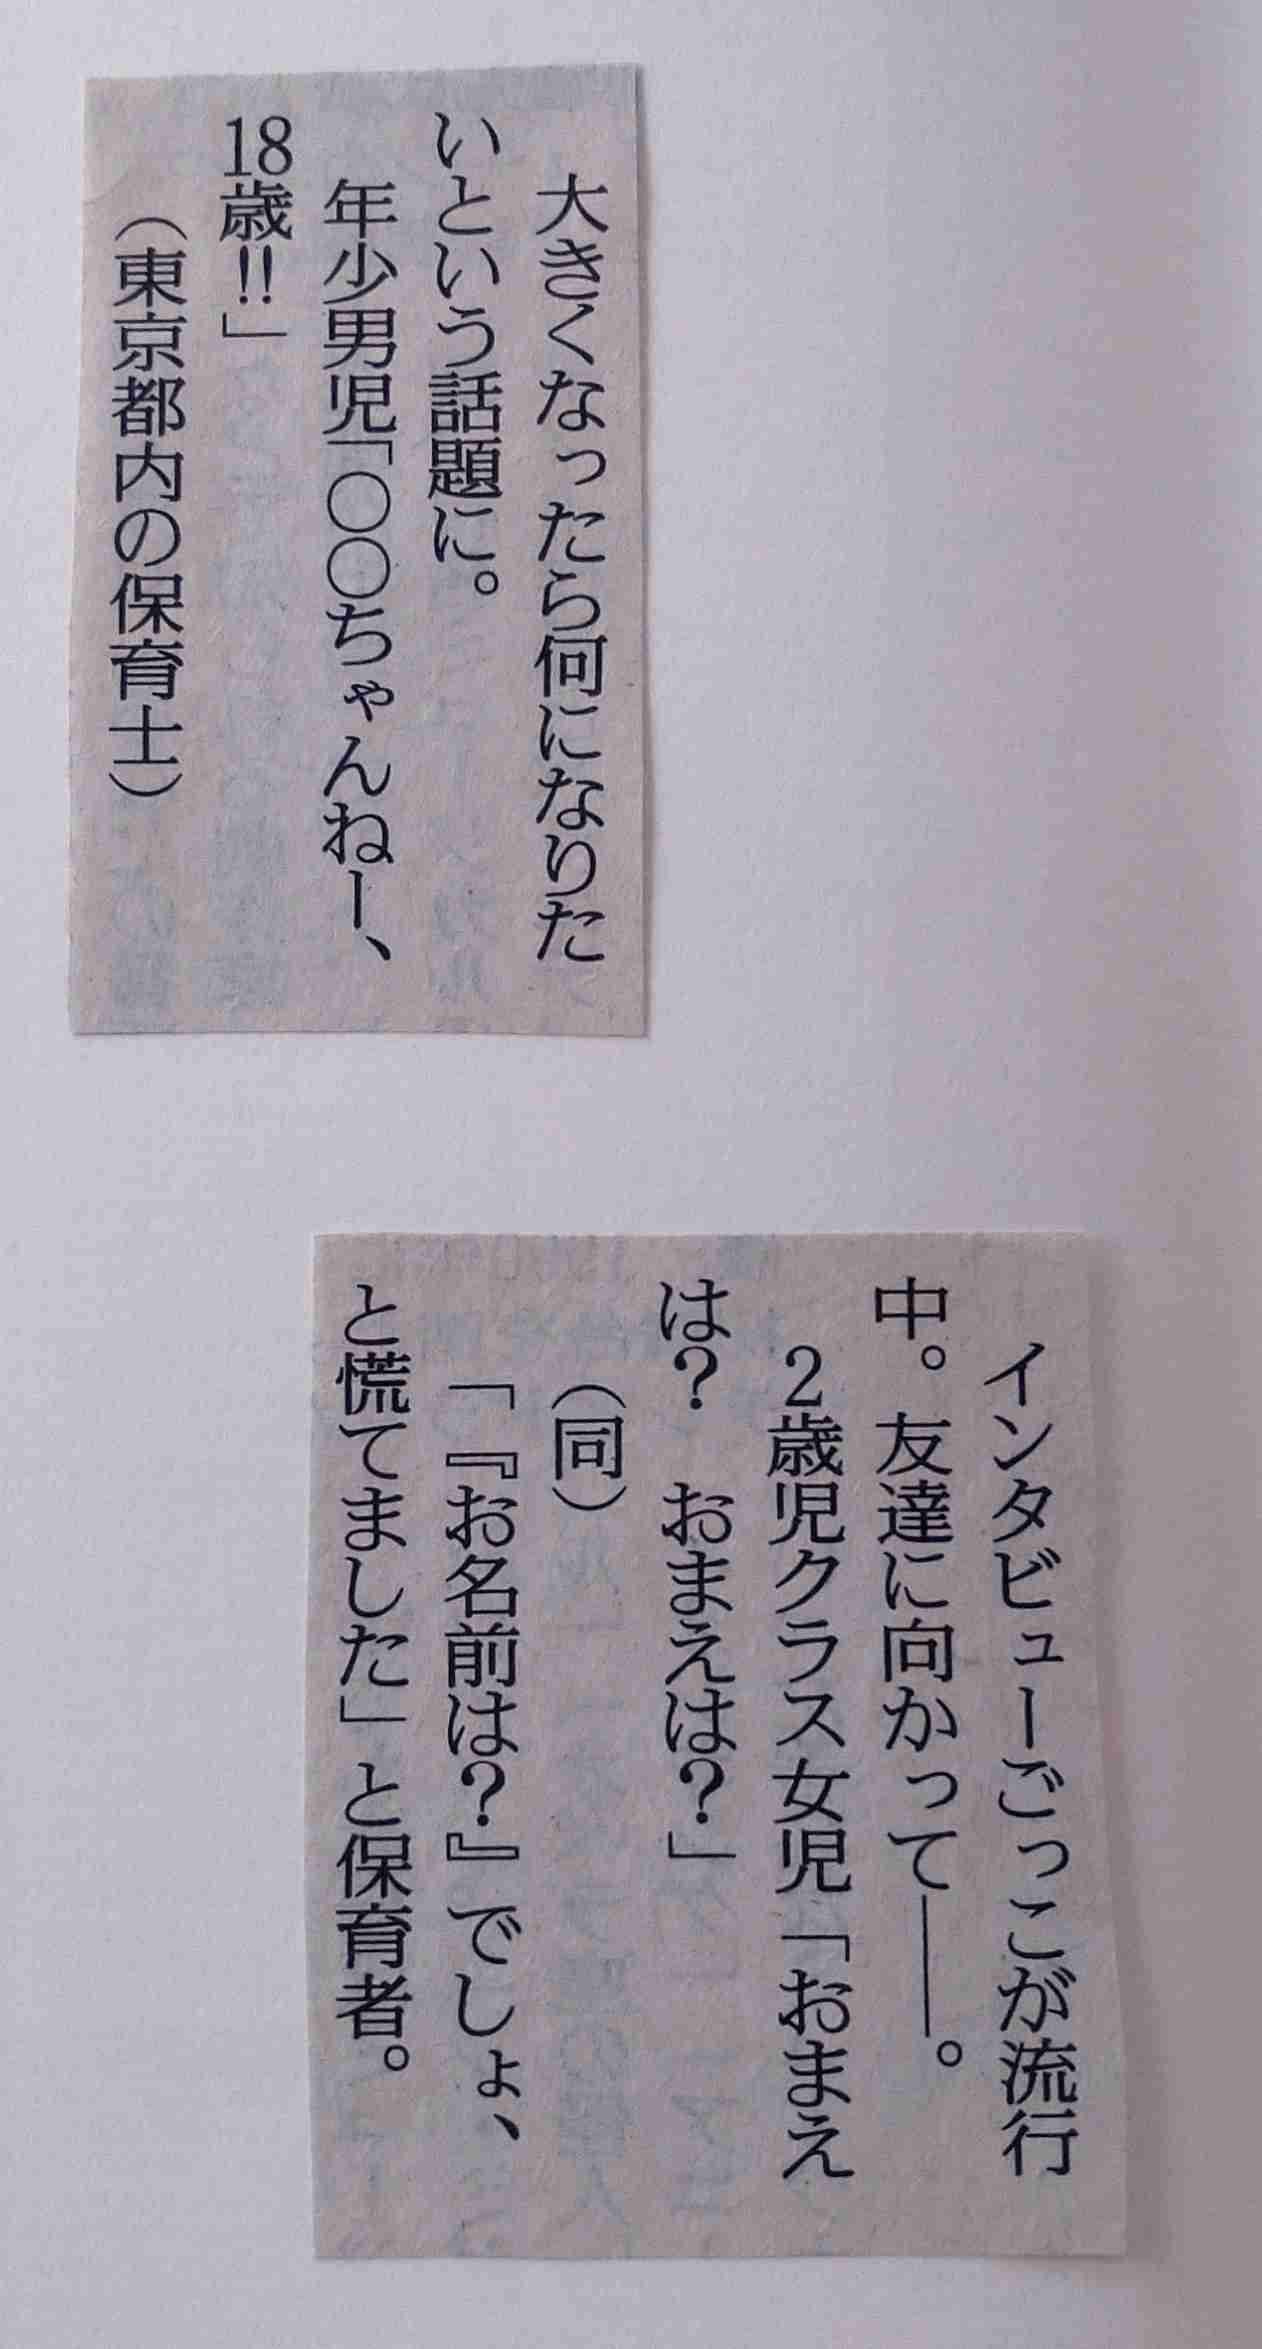 大きくなったら何になりた
いという話題に。
年少男児「〇〇ちゃんねー、
18歳!!」
（東京都内の保育士）
インタビューごっこが流行
中。友達に向かって――。
2歳児クラス女児「おまえ
は？　おまえは？」
（同）
「『お名前は？』でしょ、
と慌てました」と保育者。